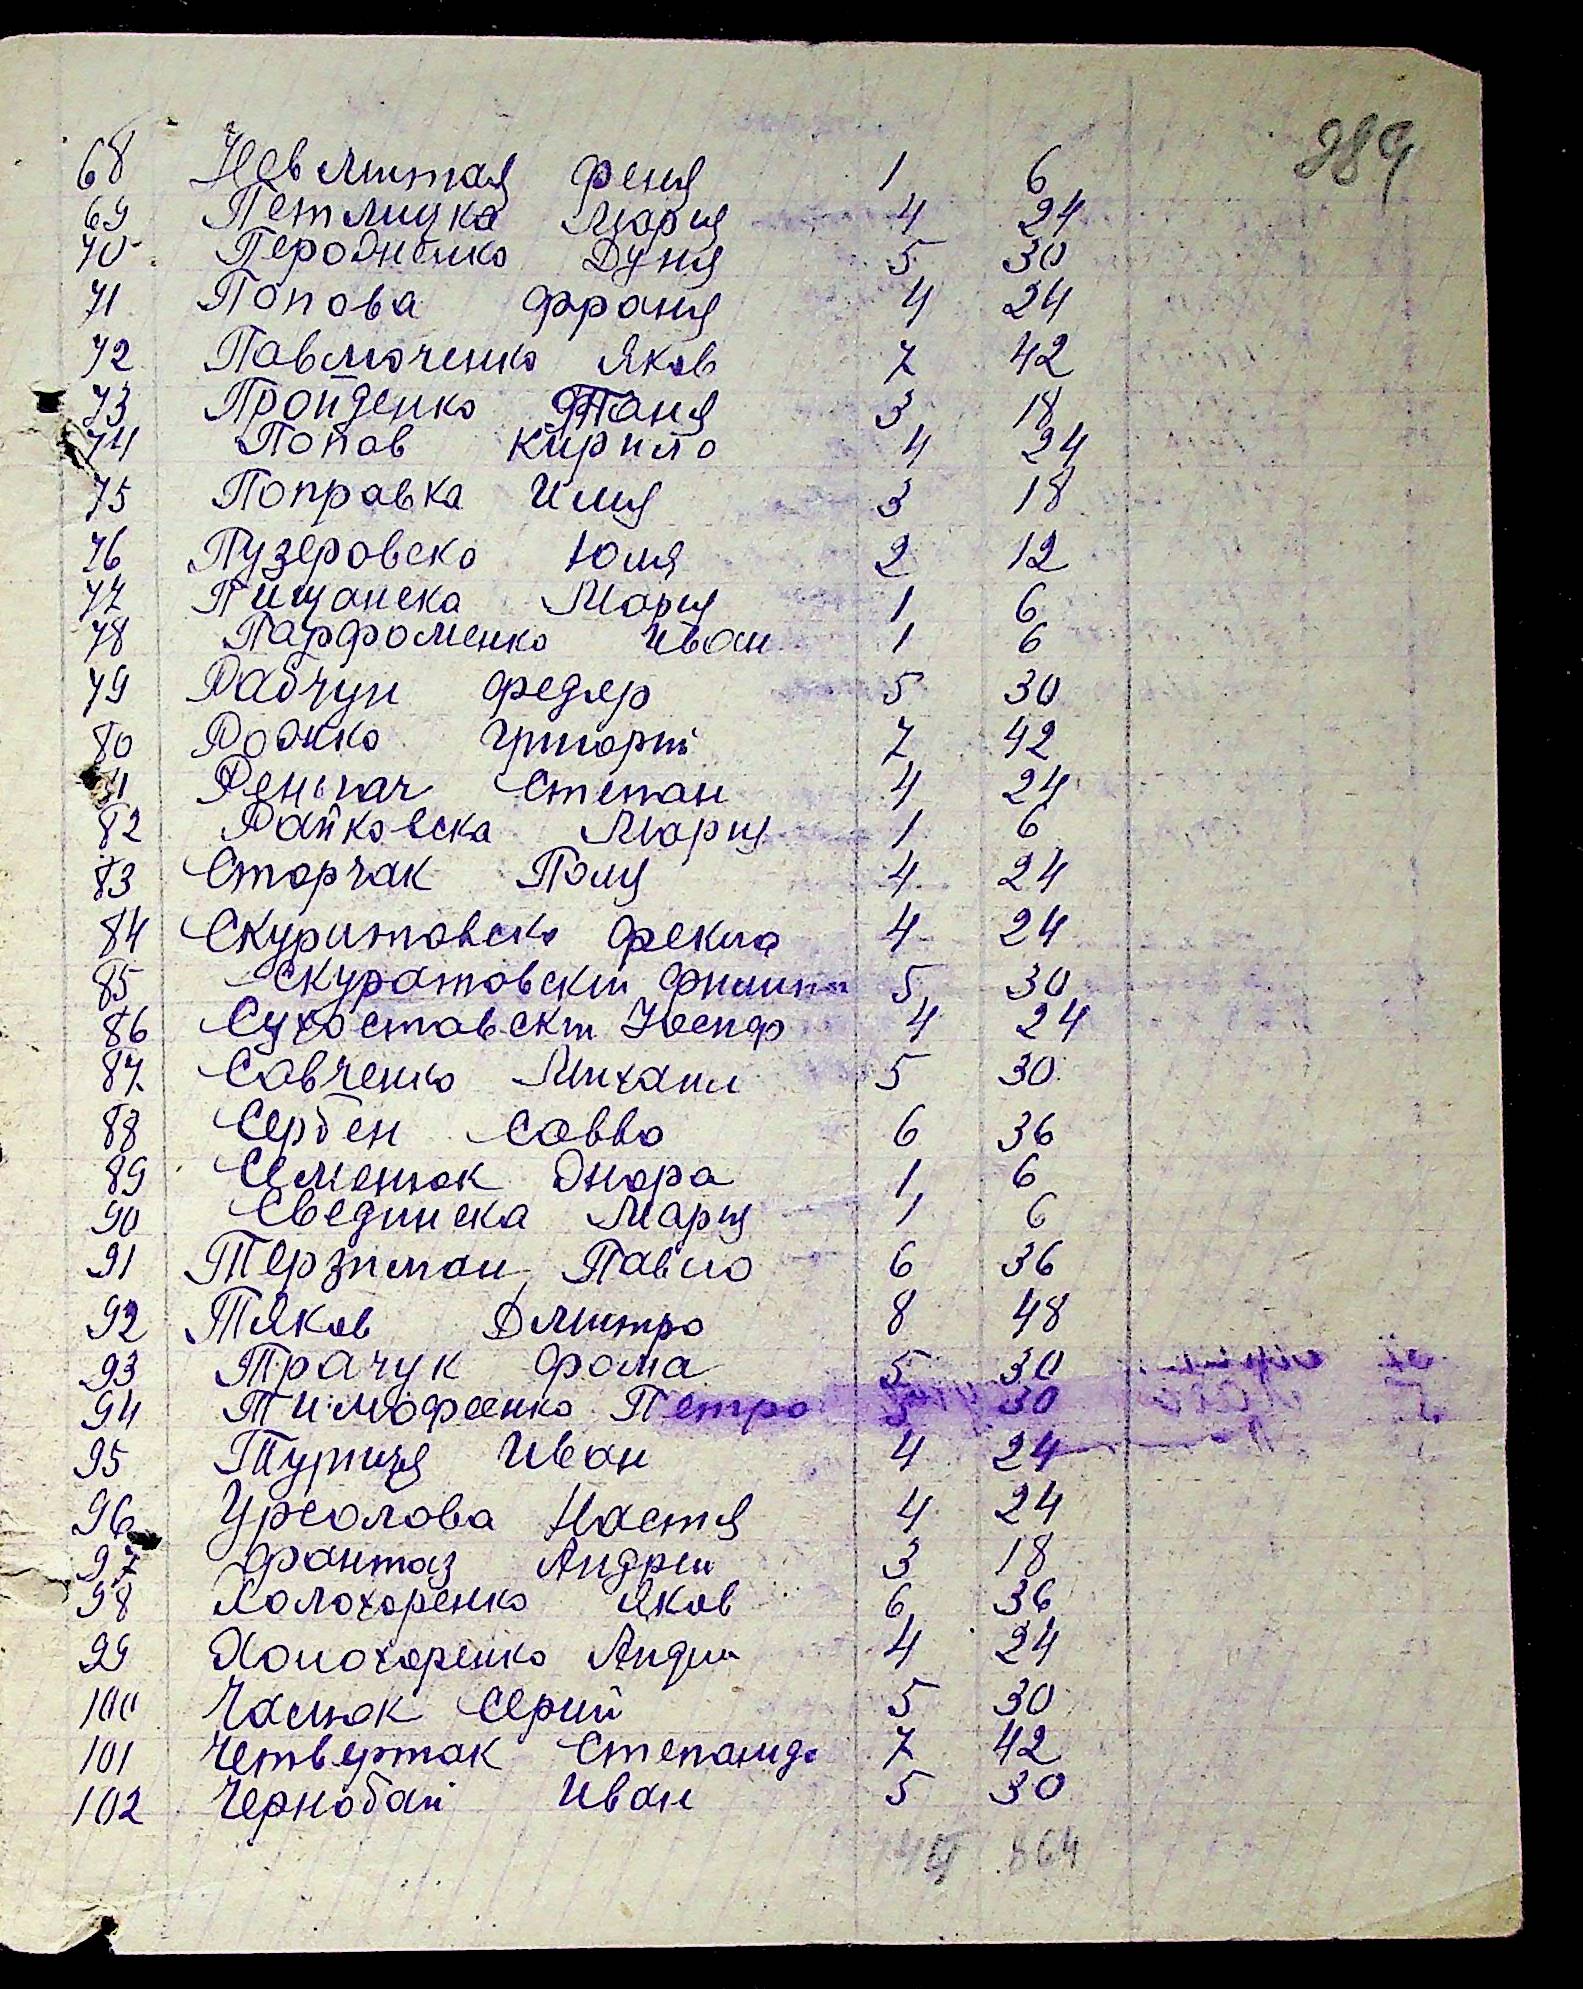 289
68 Невлитая Феня 1 6
69 Петлицка Мария 4 24
70 Дуня 5 30
71 Попова Франя 4 24
72 Павлюченко Яков 7 42
73 Пройденко Таня 3 18
74 Попов Кирило 4 24
75 Поправка Илия 3 18
76 Пузеровска Юля 2 12
77 Пищанска Мария 1 6
78 Парфоменко Иван 1 6
79 Рабчун Федяр 5 30
80 Григорий 7 42
Степан 4 24
82 Райковска Мария 1 6
83 Сторчак Поля 4 24
84 Скуратовска Фекла 4 24
85 Скуратовский Филипп 5 30
86 Сухоставскии Иосиф 4 24
87 Савченко Михаил 5 30
88 Сербен Савва 6 36
89 Семенюк 1 6
90 Свединска Мария 1 6
91 Терзиман Павло 6 36
92 Тяков Дмитро 8 48
93 Трачук Фома 5 30
94 Тимофеенко Петро 5 30
95 Иван 4 24
96 Урсолова Настя 4 24
97 Фантаз Андрей 3 18
98 Холохоренко Яков 6 36
99 Холохоренко Андрий 4 24
100 Чалюк Сергий 5 30
101 Четвертак Степанида 7 42
102 Чернобай Иван 5 30
864